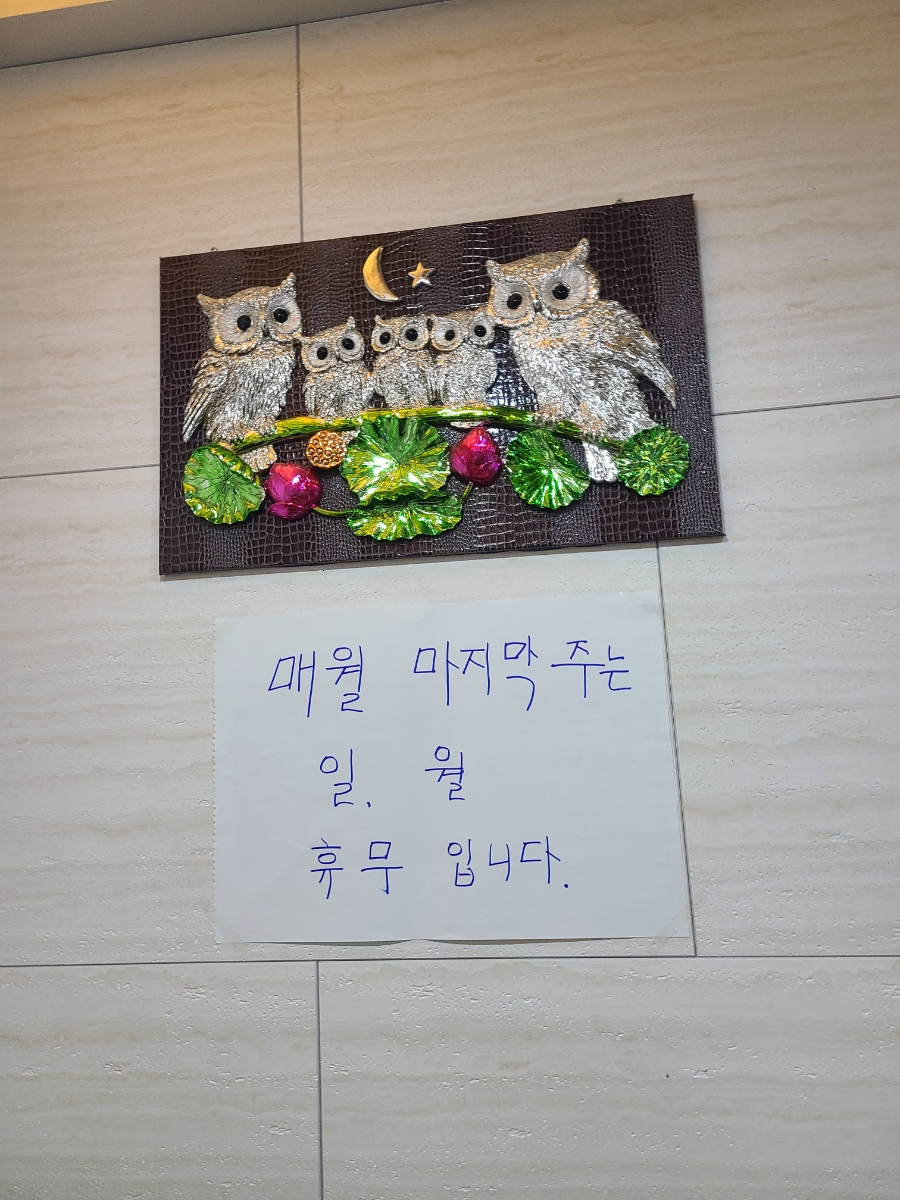 매월 마지막 주는
일. 월
휴무 입니다.